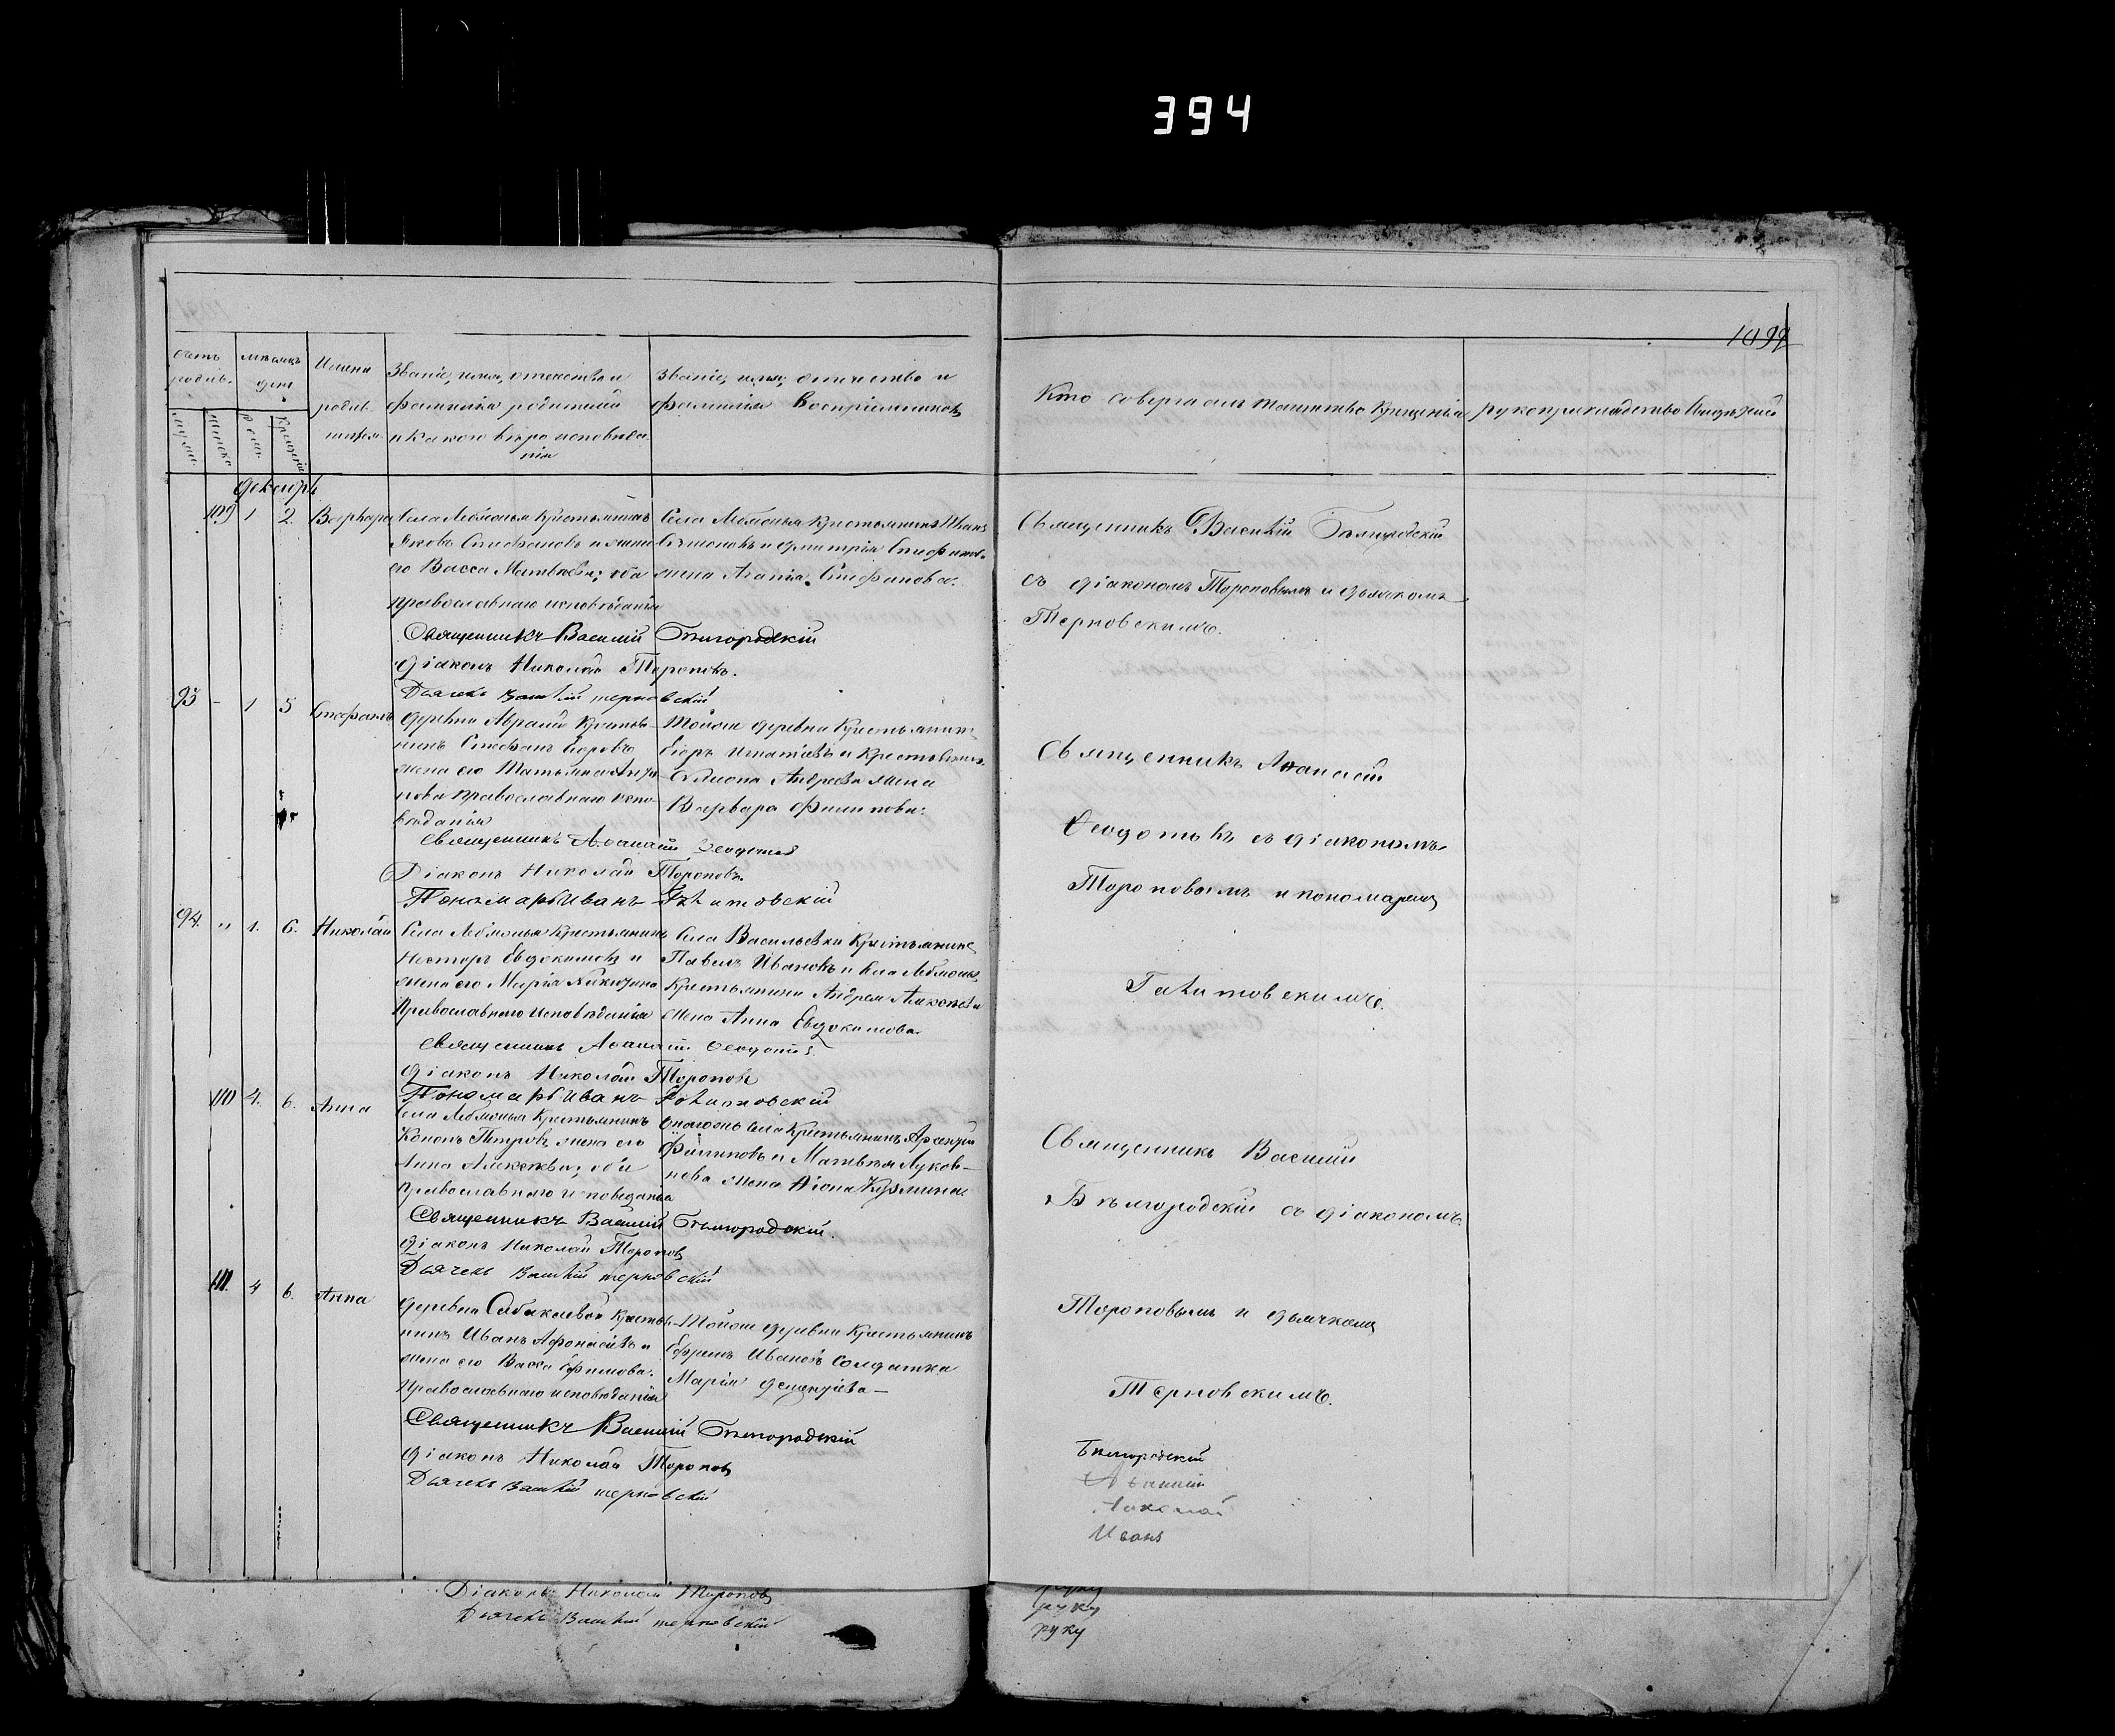 394
1099
счетъ родив.
мѣсяцъ и дни
Имена родив-
шихся
Званіе, имя, отечество и
фамилія родителей
и какого вѣро исповѣда
нія
Званіе, имя, отчество и
фамилія воспріемниковъ
Кто совершалъ таинство крещенія
рукоприкладство свидѣтелей
муже.
женска
рожд.
крещенія
декабрь
109 1 2. Варвара
Села Лебяжья крестьянинъ
Яковъ Стефановъ и жена
его Васса Матвѣева; оба
православнаго исповѣданія
Села Лебяжья крестьянинъ Иванъ
и Дмитрія Стефанов.
жена Агапія Стефанова.
Священникъ Василій Бѣлгородскій
съ діакономъ Тороповымъ и дьячкомъ
Терновскимъ.
Священникъ Василій Бѣлгородскій
Діаконъ Николай Тороповъ.
Дьячекъ Василій Терновскій
93 - 1 5 Стефанъ
деревни крестья-
нинъ Стефанъ Егоровъ
жена его Татьяна
православнаго испо-
вѣданія
Тойже деревни крестьянинъ
Егоръ Игнатіевъ и крестьянина
Андреева жена
Варвара Филипова.
Священникъ Афанасій
Феодотьевъ съ діакономъ
Тороповымъ и пономаремъ
Священникъ Афанасій Феодотьев
Діаконъ Николай Тороповъ.
Пономарь Иванъ
94. " 1. 6. Николай
Села Лебяжья крестьянинъ
Несторъ Евдокимовъ и
жена его Марія Никитина
Православнаго исповѣданія
Села Васильевки крестьянинъ
Павелъ Ивановъ и села Лебяжья
крестьянина Андрея Алексѣева
жена Анна Евдокимова.
Священникъ Афанасій Феодотьев
Діаконъ Николай Тороповъ
Пономарь Иванъ
110 4. 6. Анна
Села Лебяжья крестьянинъ
Кононъ Петровъ жена его
Анна Алексѣева; оба
православнаго исповеданія
Села крестьянинъ
Филиповъ и Матвѣя
жена Кузмина
Священникъ Василій
Бѣлгородскій съ діакономъ
Тороповымъ и дьячкомъ
Терновскимъ.
Священникъ Василій Бѣлгородскій.
Діаконъ Николай Тороповъ
Дьячекъ Василій Терновскій
111. 4 6. Анна
деревни крестья-
нинъ Иванъ Афонасіевъ и
жена его Васса Ефимова.
православнаго исповѣданія
Тойже деревни крестьянинъ
Ефремъ Ивановъ солдатка
Марія
Священникъ Василій Бѣлгородскій
Діаконъ Николай Тороповъ
Дьячекъ Василій Терновскій
Бѣлгородскій
Николай
Иванъ
Діаконъ Николай Тороповъ
Дьячекъ Василій Терновскій
руку
руку
руку